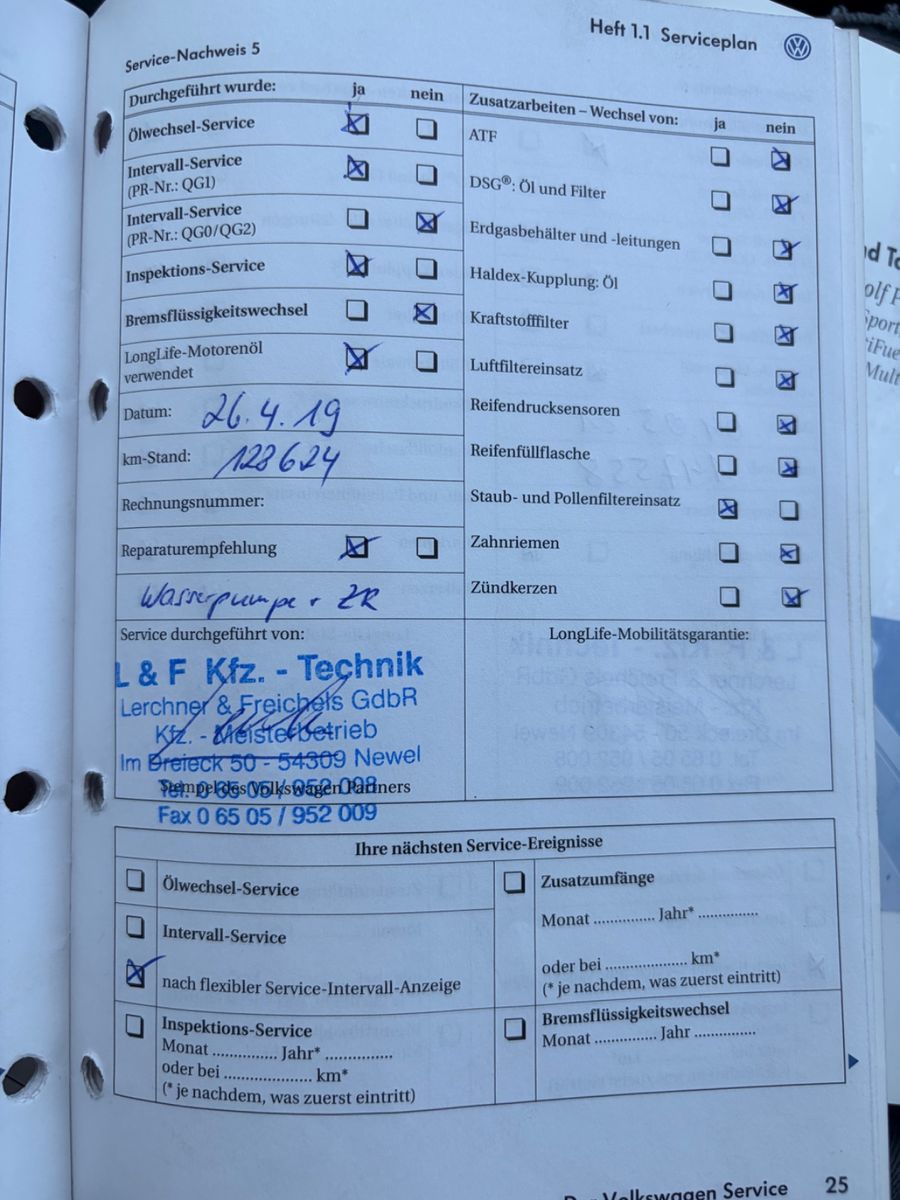 Heft 1.1 Serviceplan
Service-Nachweis 5
Durchgeführt wurde: ja nein
Ölwechsel-Service
Intervall-Service
(PR-Nr.: QG1)
Intervall-Service
(PR-Nr.: QG0/QG2)
Inspektions-Service
Bremsflüssigkeitswechsel
LongLife-Motorenöl
verwendet
Datum: 26.4.19
km-Stand: 128624
Rechnungsnummer:
Reparaturempfehlung
Wasserpumpe + ZR
Zusatzarbeiten – Wechsel von: ja nein
ATF
DSG®: Öl und Filter
Erdgasbehälter und -leitungen
Haldex-Kupplung: Öl
Kraftstofffilter
Luftfiltereinsatz
Reifendrucksensoren
Reifenfüllflasche
Staub- und Pollenfiltereinsatz
Zahnriemen
Zündkerzen
Service durchgeführt von:
L & F Kfz. - Technik
Lerchner & Freichels GdbR
Kfz. - Meisterbetrieb
Im Dreieck 50 - 54309 Newel
Tel. 0 65 05 / 952 008
Stempel des Volkswagen Partners
Fax 0 65 05 / 952 009
LongLife-Mobilitätsgarantie:
Ihre nächsten Service-Ereignisse
Ölwechsel-Service
Intervall-Service
nach flexibler Service-Intervall-Anzeige
Inspektions-Service
Monat .............. Jahr* ..............
oder bei .................... km*
(* je nachdem, was zuerst eintritt)
Zusatzumfänge
Monat .............. Jahr* ..............
oder bei .................... km*
(* je nachdem, was zuerst eintritt)
Bremsflüssigkeitswechsel
Monat .............. Jahr ..............
Der Volkswagen Service 25